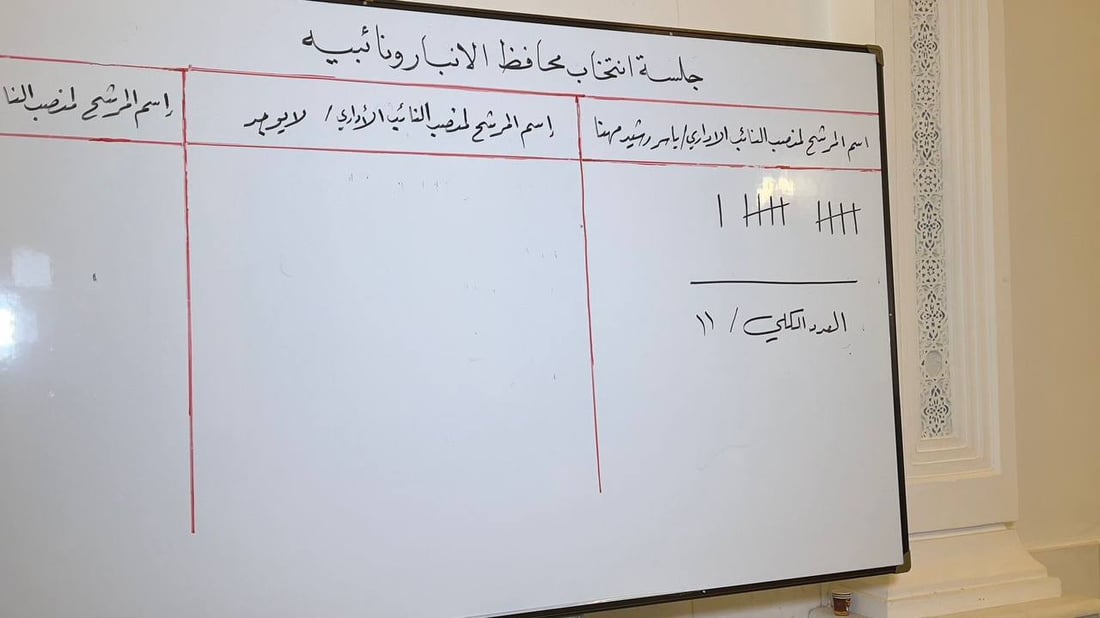 جلسة انتخاب محافظ الانبار ونائبيه
اسم المرشح لمنصب النائب الاداري/ ياسر رشيد مهنا
إسم المرشح لمنصب النائب الأداري/ لا يوجد
إسم المرشح لمنصب النا
العدد الكلي / ١١